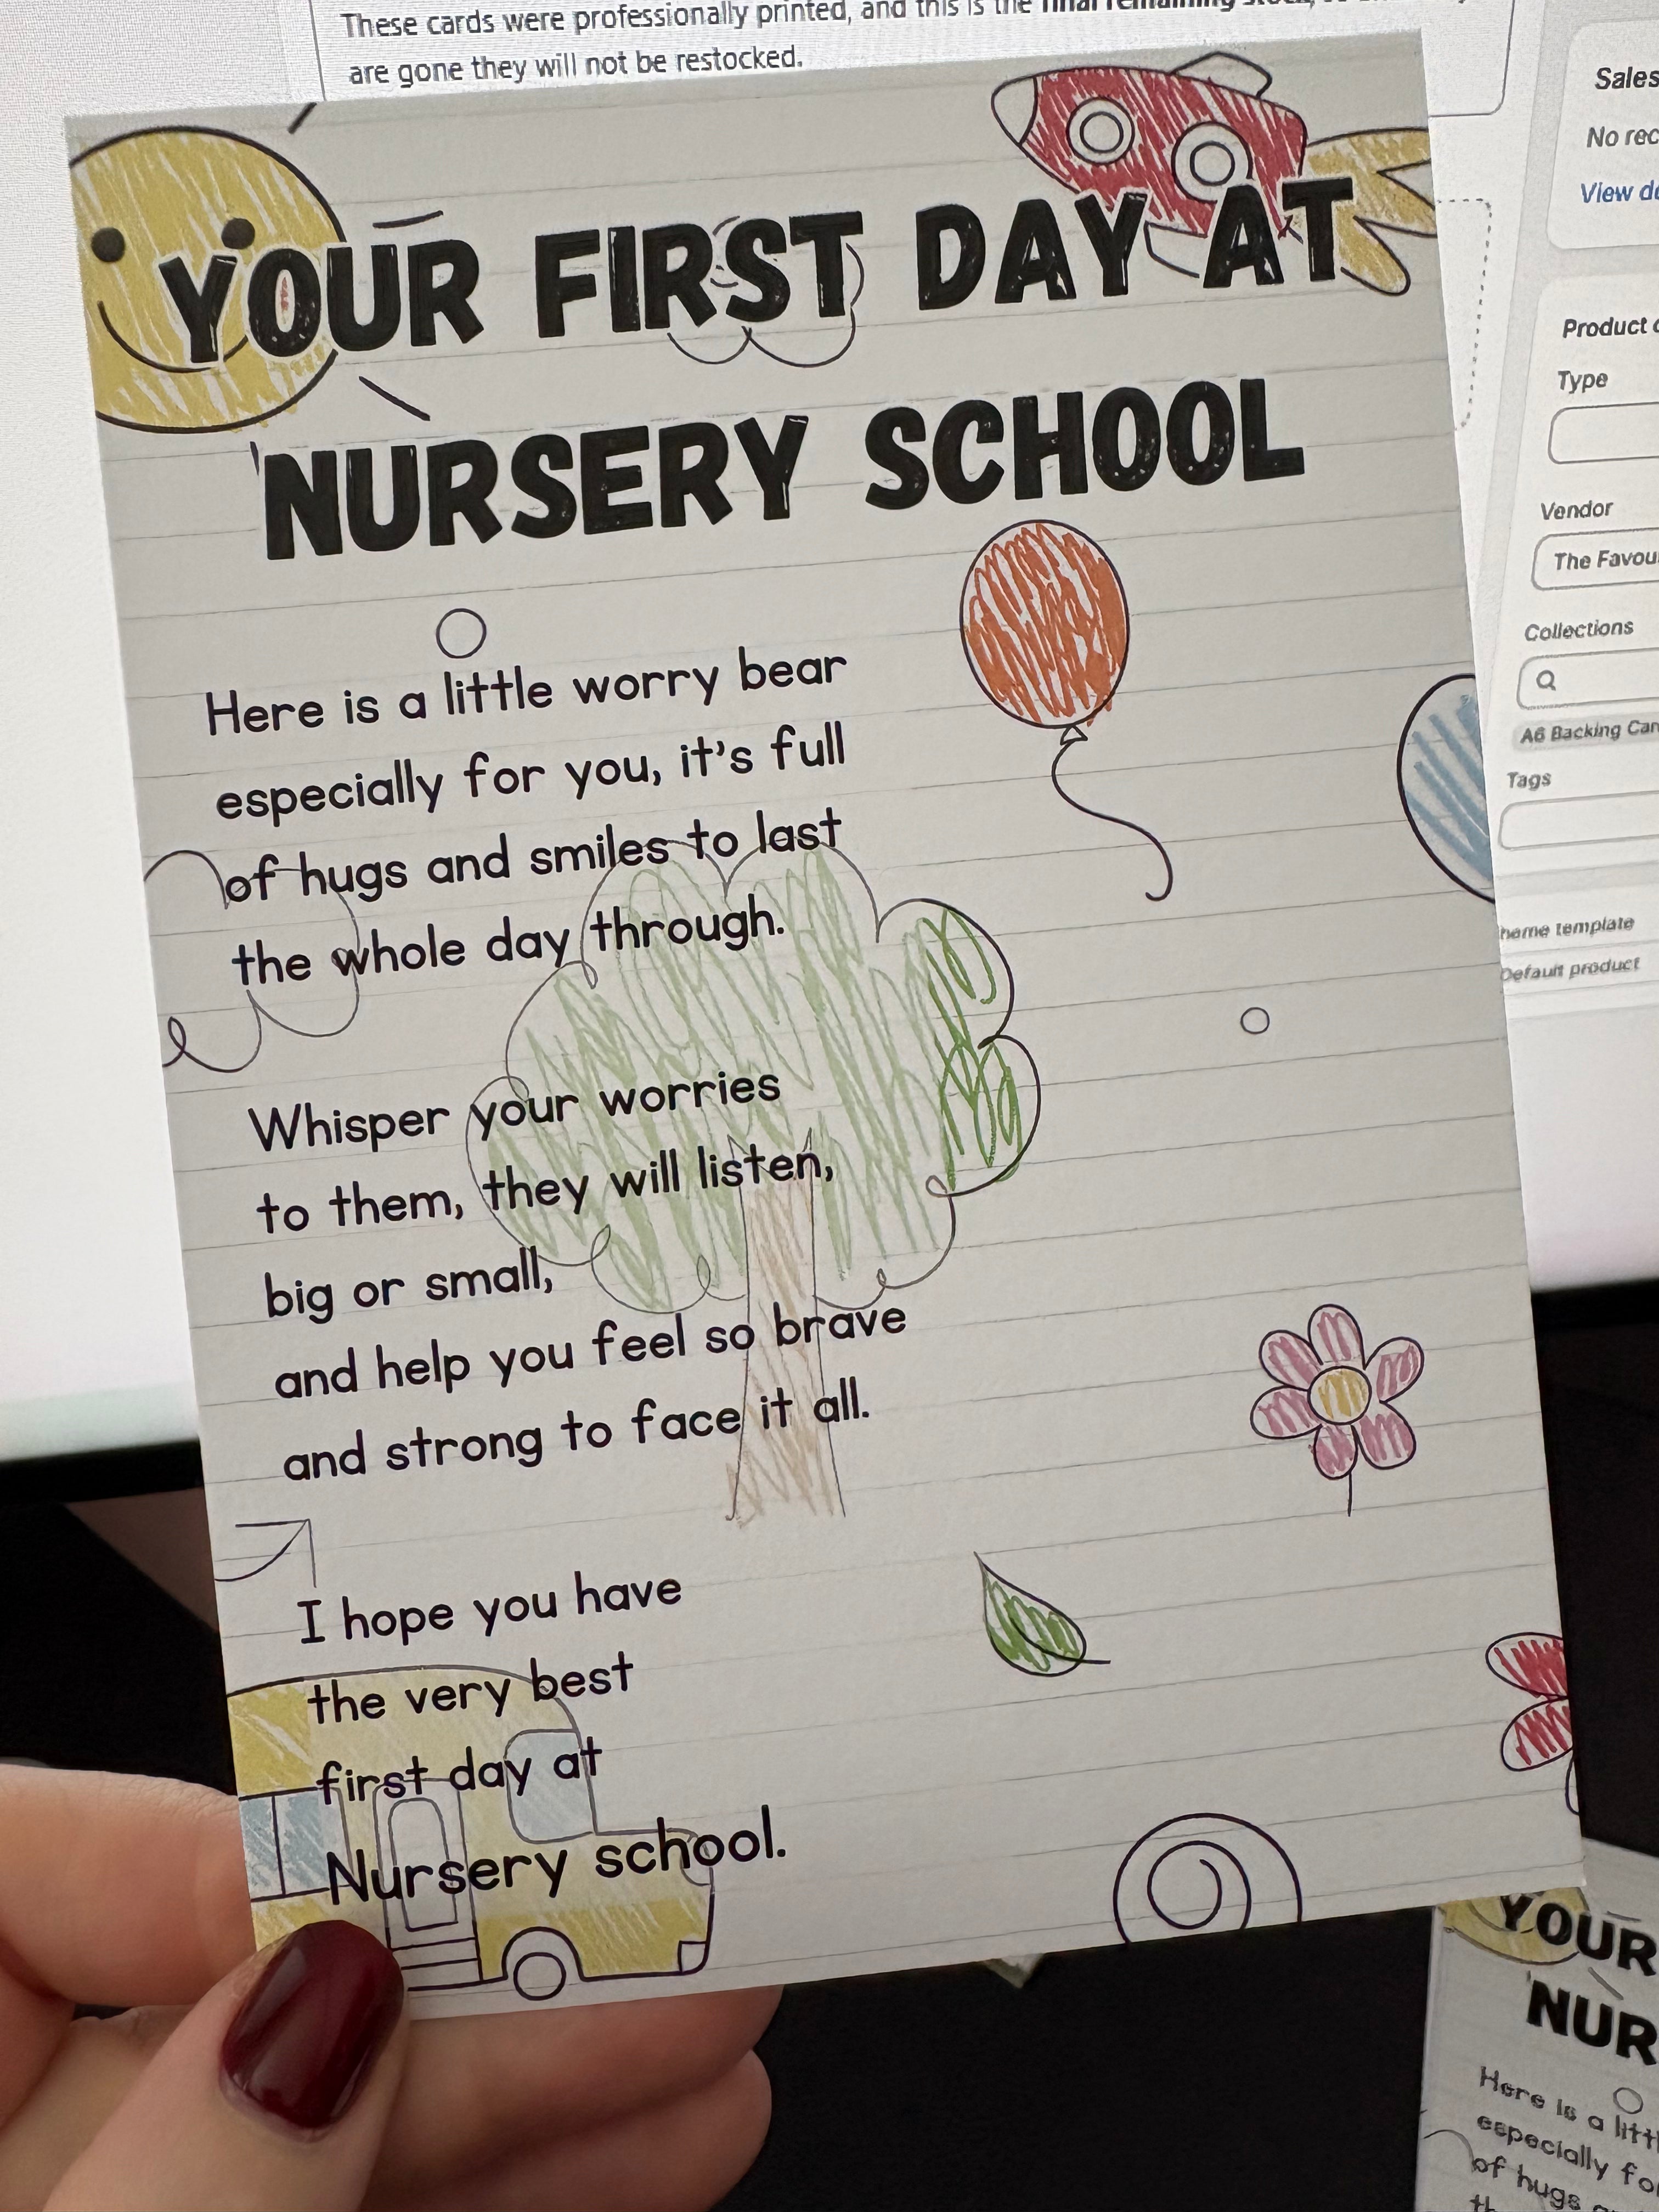 These cards were professionally printed, and this is the final remaining stock,
are gone they will not be restocked.
YOUR FIRST DAY AT
NURSERY SCHOOL
Here is a little worry bear
especially for you, it's full
of hugs and smiles to last
the whole day through.
Whisper your worries
to them, they will listen,
big or small,
and help you feel so brave
and strong to face it all.
I hope you have
the very best
first day at
Nursery school.
Sales
No
View
Product
Type
Vendor
The
Collections
A6 Backing
Tags
template
Default product
YOUR
Here is a
especially
of hugs